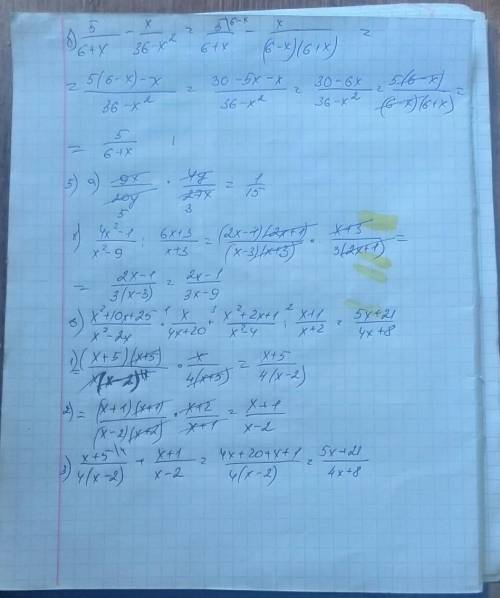 б) 5/(6+x) - x/(36-x²) = 5\6-x/(6+x) - x/((6-x)(6+x)) =
= (5(6-x)-x)/(36-x²) = (30-5x-x)/(36-x²) = (30-6x)/(36-x²) = (5(6-x))/((6-x)(6+x)) =
= 5/(6+x) ;
5) а) 9x/20y · 4y/27x = 1/15
5 3
(4x²-1)/(x²-9) : (6x+3)/(x+3) = ((2x-1)(2x+1))/((x-3)(x+3)) · (x+3)/(3(2x+1)) =
= (2x-1)/(3(x-3)) = (2x-1)/(3x-9)
в) (x²+10x+25)/(x²-2x) ·¹ x/(4x+20) +³ (x²+2x+1)/(x²-4) :² (x+1)/(x+2) = (5x+21)/(4x+8)
1) = ((x+5)(x+5))/(x(x-2)) · x/(4(x+5)) = (x+5)/(4(x-2))
2) = ((x+1)(x+1))/((x-2)(x+2)) · (x+2)/(x+1) = (x+1)/(x-2)
3) (x+5)/(4(x-2)) + (x+1)/(x-2) = (4x+20+x+1)/(4(x-2)) = (5x+21)/(4x+8)